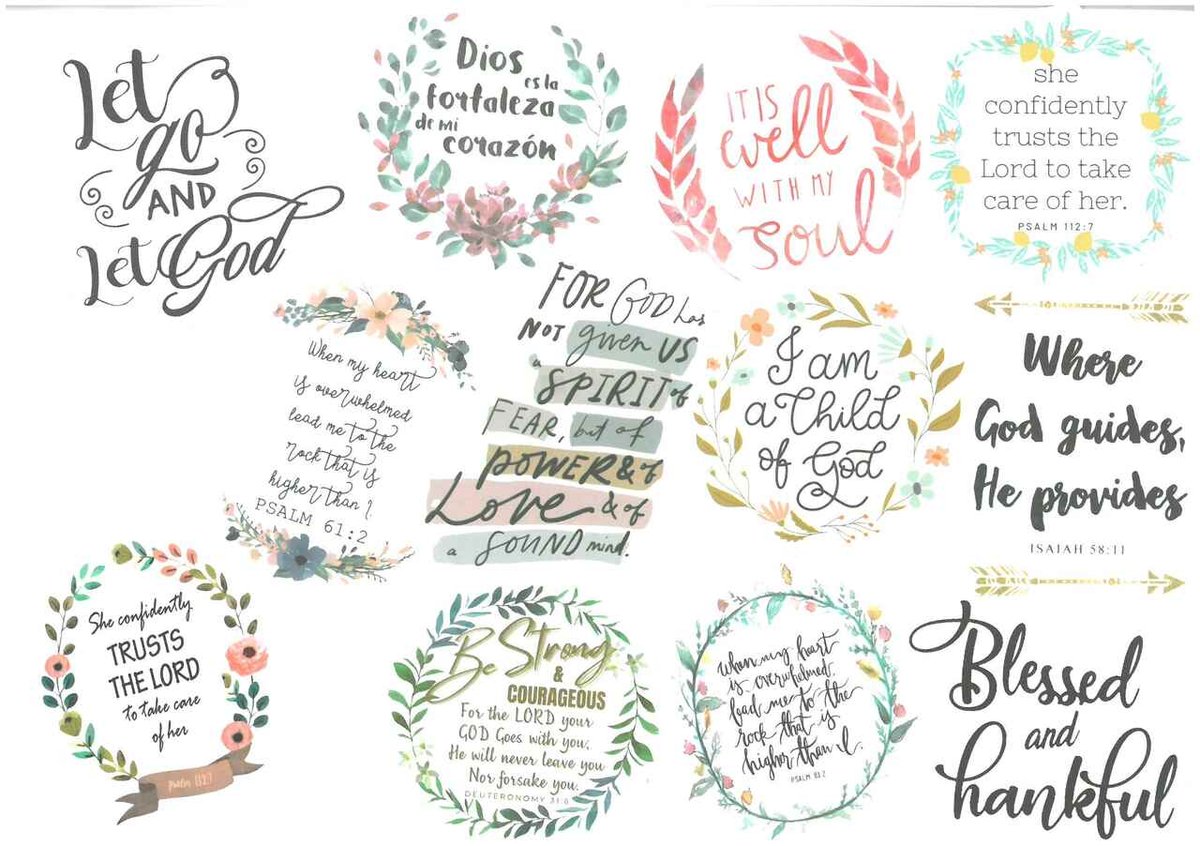 Let
go
AND
Let God
Dios
es la
fortaleza
de mi
corazón
IT IS
well
WITH MY
soul
she
confidently
trusts the
Lord to take
care of her.
PSALM 112:7
When my heart
is overwhelmed
lead me to the
rock that is
higher than I.
PSALM 61:2
FOR GOD has
NOT given US
a SPIRIT of
FEAR, but of
POWER & of
Love & of
a SOUND mind.
I am
a Child
of God
Where
God guides,
He provides
ISAIAH 58:11
She confidently
TRUSTS
THE LORD
to take care
of her
psalm 112:7
Be Strong
&
COURAGEOUS
For the LORD your
GOD Goes with you;
He will never leave you
Nor forsake you.
DEUTERONOMY 31:6
when my heart
is overwhelmed,
lead me to the
rock that is
higher than I.
PSALM 61:2
Blessed
and
hankful